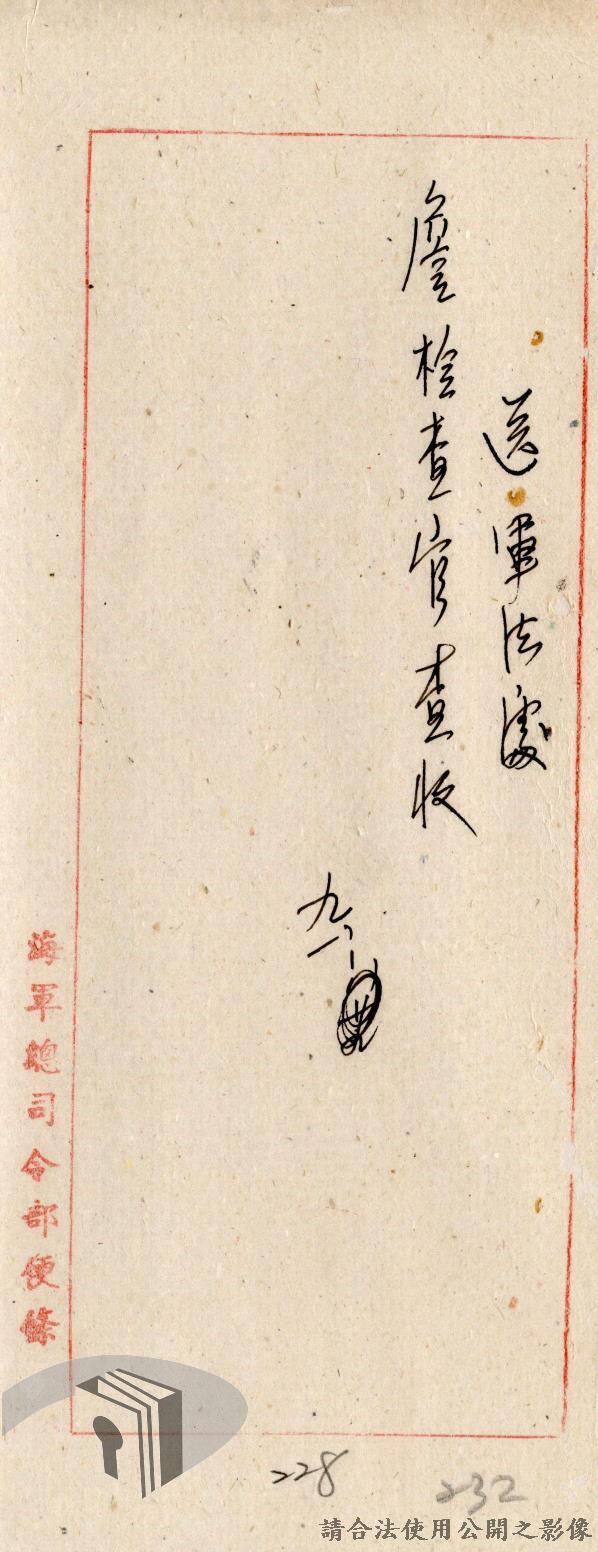 送軍法處
詹檢查官查收
九
海軍總司令部便條
228
232
請合法使用公開之影像